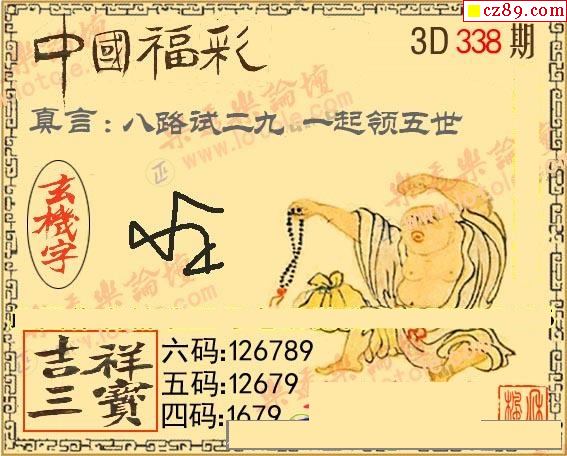 cz89.com
中國福彩
3D 338 期
真言：八路试二九 一起领五世
玄機字
吉祥三寶
六码:126789
五码:12679
四码:1679